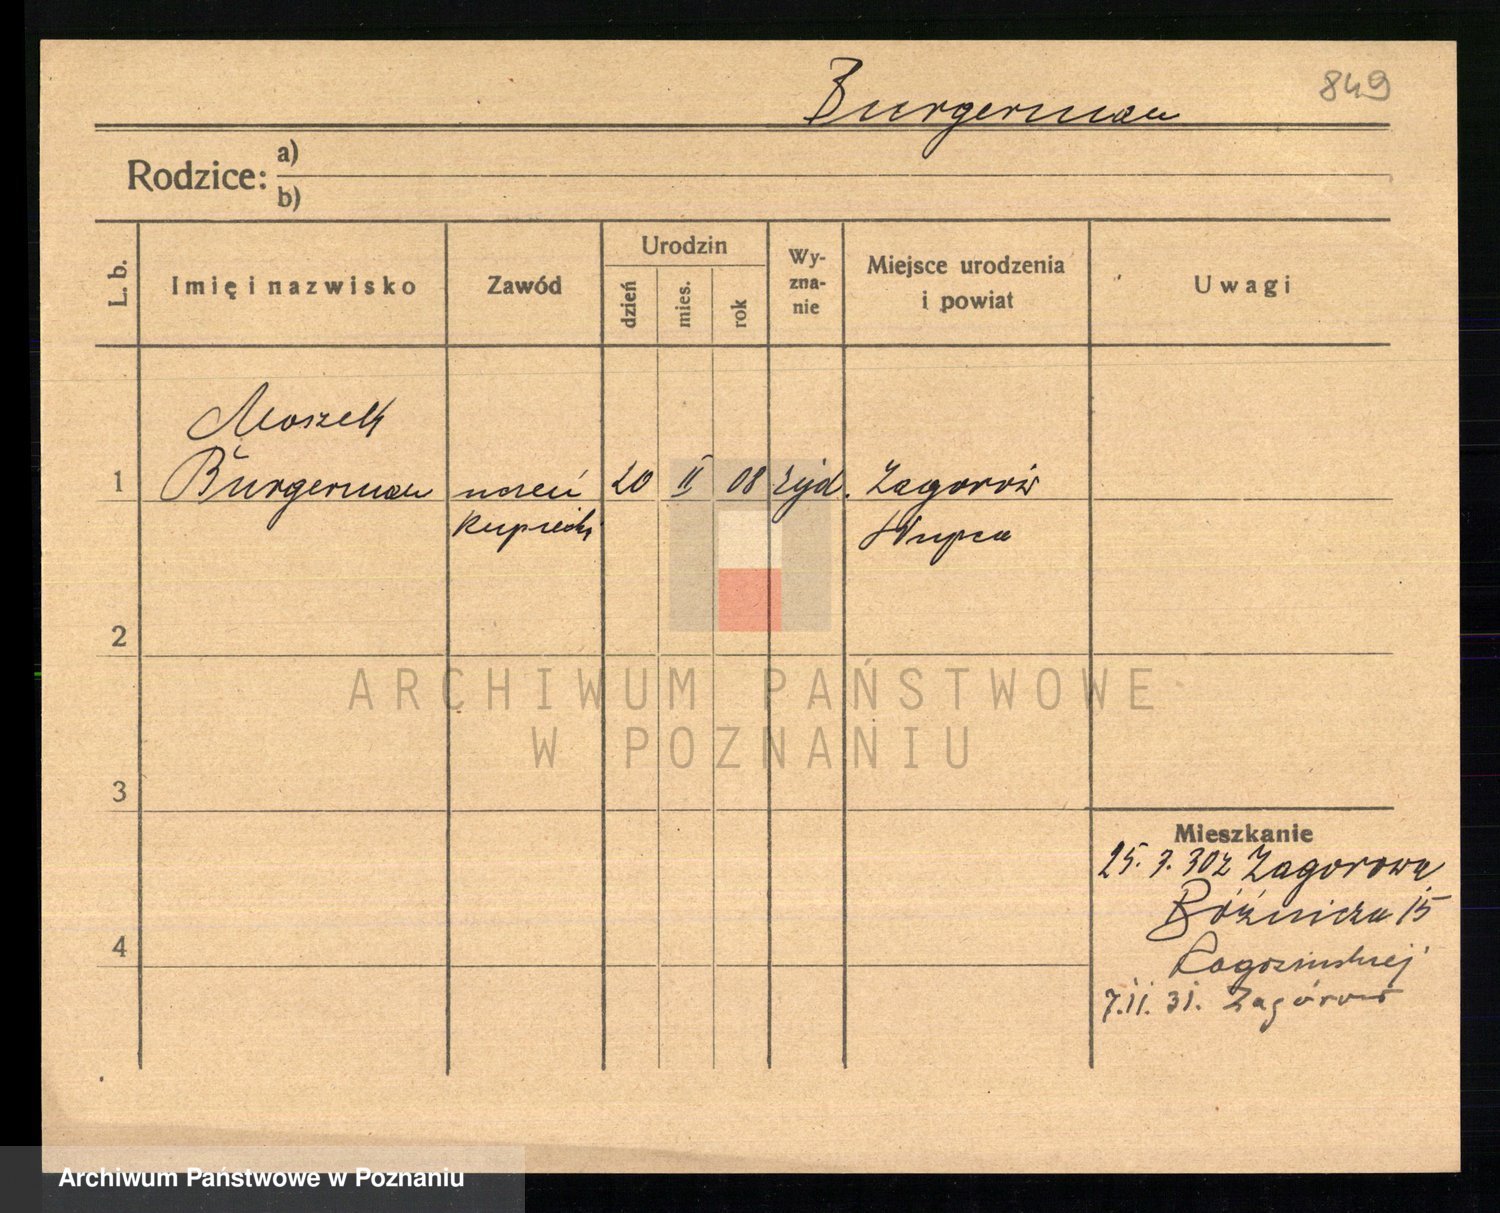 849
Burgerman
Rodzice: a)
b)
L. b.
Imię i nazwisko
Zawód
Urodzin
dzień
mies.
rok
Wy-
zna-
nie
Miejsce urodzenia
i powiat
Uwagi
Moszek
1 Burgerman uczeń 20 II 08 żyd. Zagorów
kupiecki Słupca
2
ARCHIWUM PAŃSTWOWE
W POZNANIU
3
Mieszkanie
25. 7. 30 z Zagorowa
Bóżnicza 15
4
7.11. 31. Zagórów
Archiwum Państwowe w Poznaniu